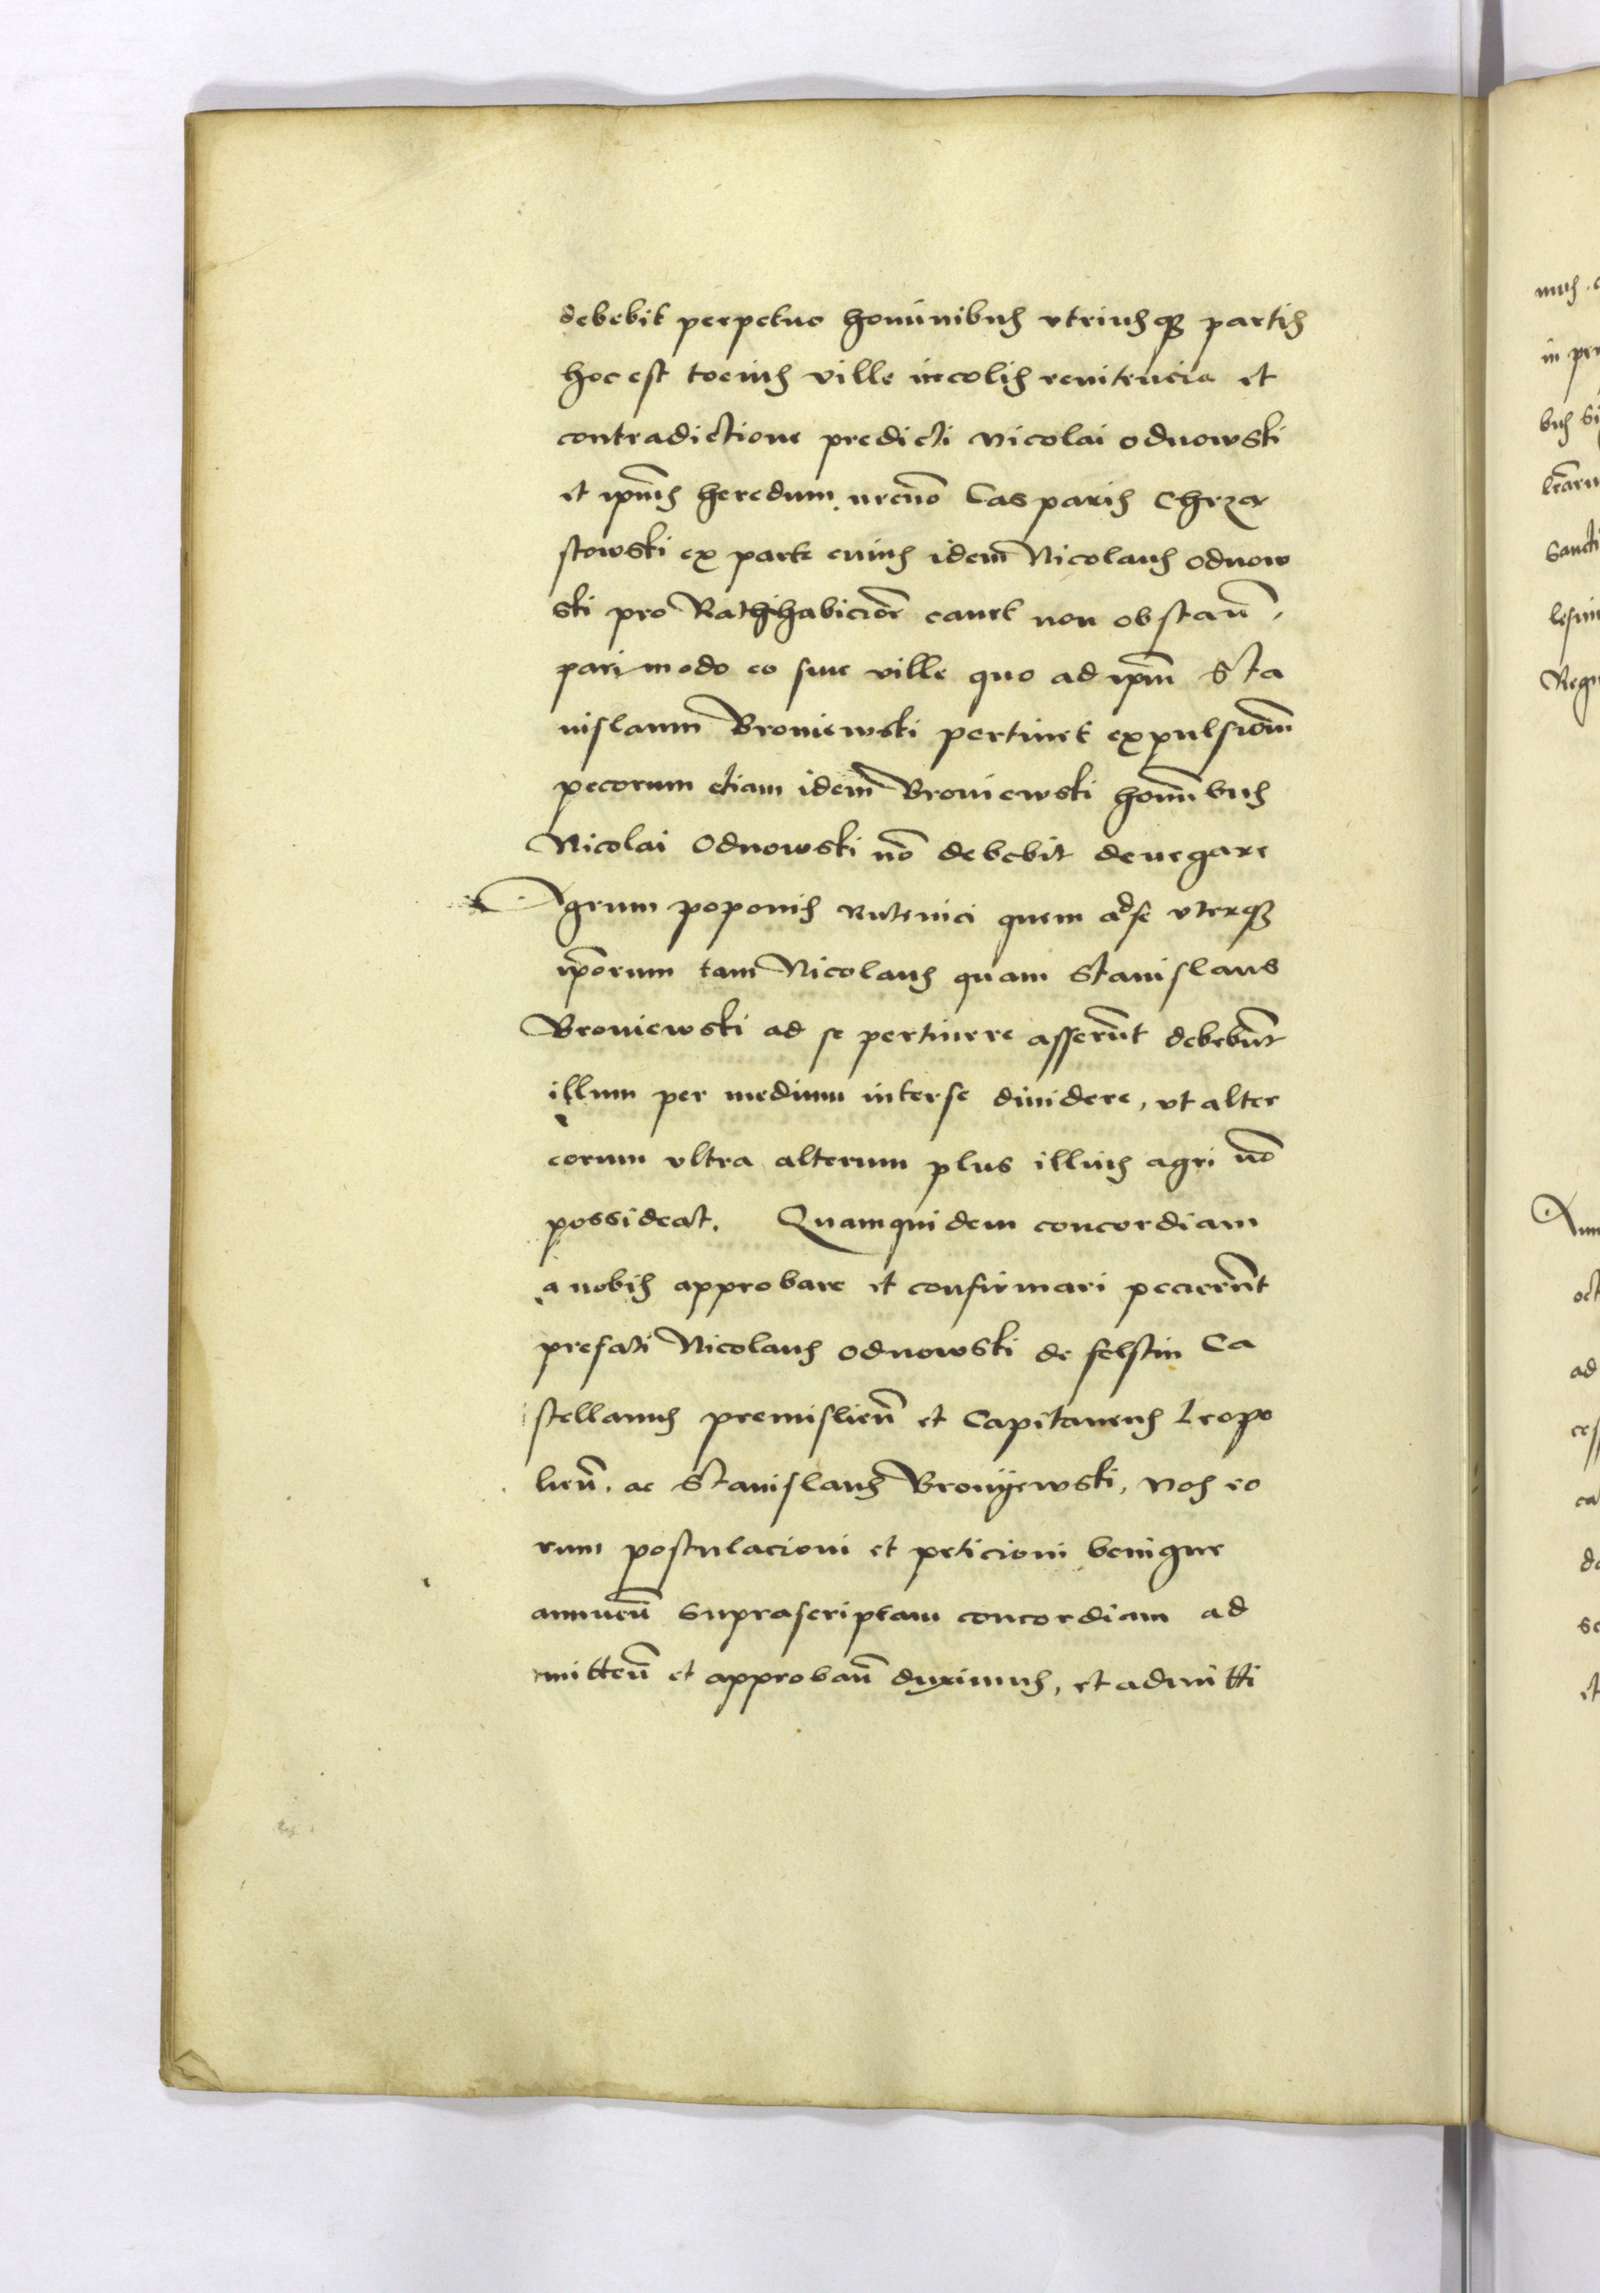 debebit perpetuo hominibus vtriusq3 partis
hoc est tocius ville incolis renitencia et
contradictione predicti Nicolai odnowski
et ipius heredum necnō Casparis Chrzą
stowski ex parte cuius idem Nicolaus odnow
ski pro Rathihabicioē cauet non obstan̄,
pari modo eo siue ville quo ad ipm̄ Sta
nislaum Broniewski pertinet expulsionē
pecorum etiam idem Broniewski homībus
Nicolai Odnowski nō debebit denegare
Agrum poponis Rutenici quem ad se vterq3
ipōrum tam Nicolaus quam Stanislaus
Broniewski ad se pertinere asserūt debebūt
illum per medium inter se diuidere, vt alter
eorum vltra alterum plus illius agri nō
possideat. Quamquidem concordiam
a nobis approbare et confirmari pecierūt
prefati Nicolaus odnowski de felstin Ca
stellanus premislien̄ et Capitaneus Leopo
lien̄. ac Stanislaus Bronyewski, Nos eo
rum postulacioni et peticioni benigne
annuen̄ suprascriptam concordiam ad
mitten̄ et approban̄ duximus, et admitti
mus
in per
bus
Sancti
Regn
Ann
oct
ad
cess
ca
do
et